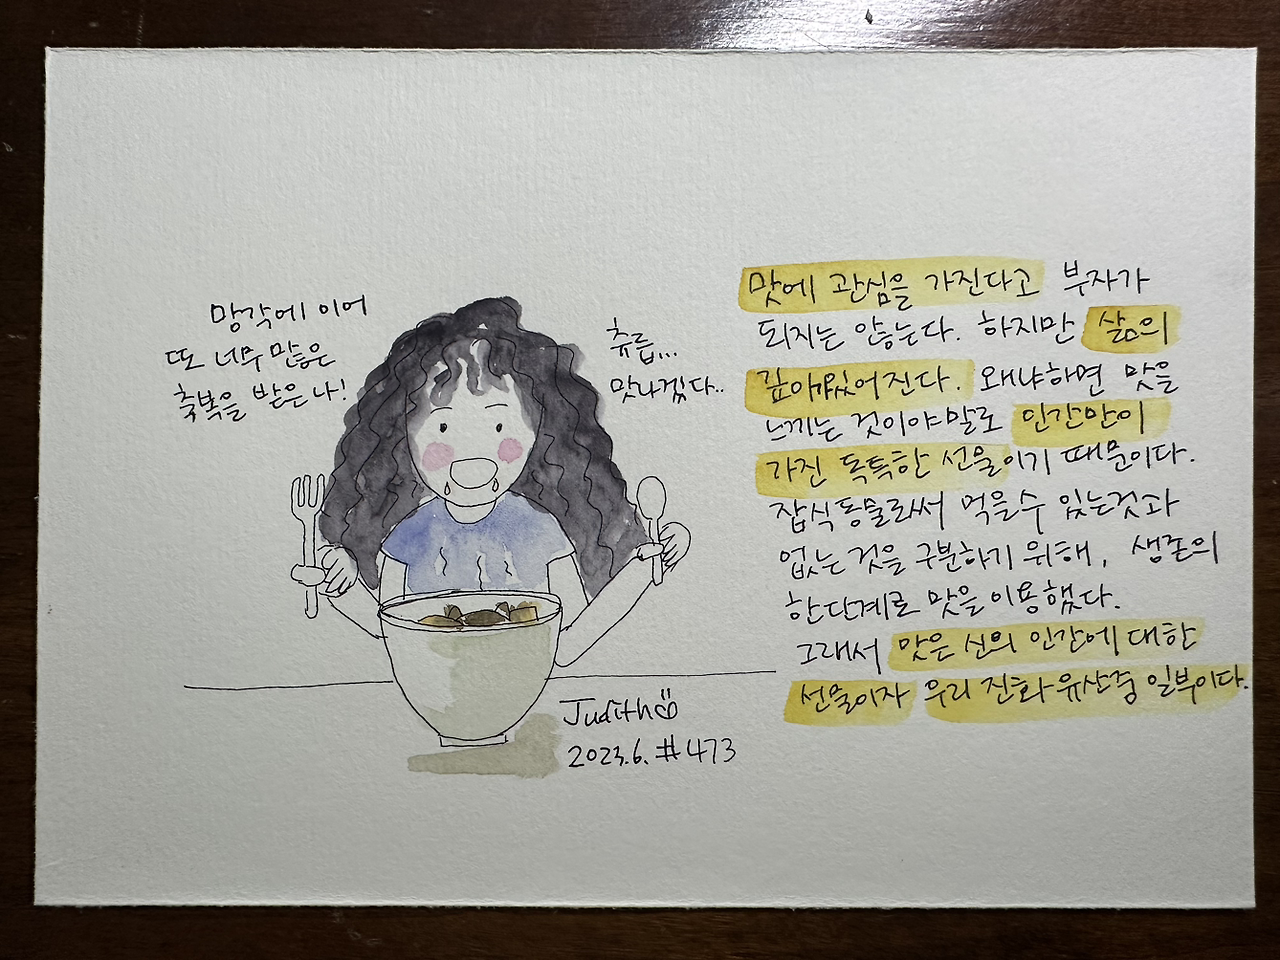 망각에 이어
또 너무 많은
축복을 받은 나!
츄릅...
맛나겠다..
맛에 관심을 가진다고 부자가
되지는 않는다. 하지만 삶의
깊이가 있어진다. 왜냐하면 맛을
느끼는 것이야말로 인간만이
가진 독특한 선물이기 때문이다.
잡식동물로써 먹을 수 있는 것과
없는 것을 구분하기 위해, 생존의
한 단계로 맛을 이용했다.
그래서 맛은 신의 인간에 대한
선물이자 우리 진화유산중 일부이다.
Judith
2023.6. #473